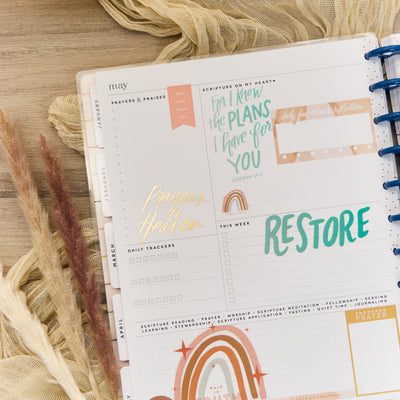 may
PRAYERS & PRAISES
SCRIPTURE ON MY HEART
For I Know
the PLANS
I have FOR
YOU
JEREMIAH 29:11
daily fav
reflection
JANUARY
FEBRUARY
MARCH
APRIL
Prayers
to
Heaven
DAILY TRACKERS
THIS WEEK
RESTORE
SCRIPTURE READING • PRAYER • WORSHIP • SCRIPTURE MEDITATION • FELLOWSHIP • SERVING
LEARNING • STEWARDSHIP • SCRIPTURE APPLICATION • FASTING • QUIET TIME • JOURNALING
ANSWERED
PRAYER
WALK IN